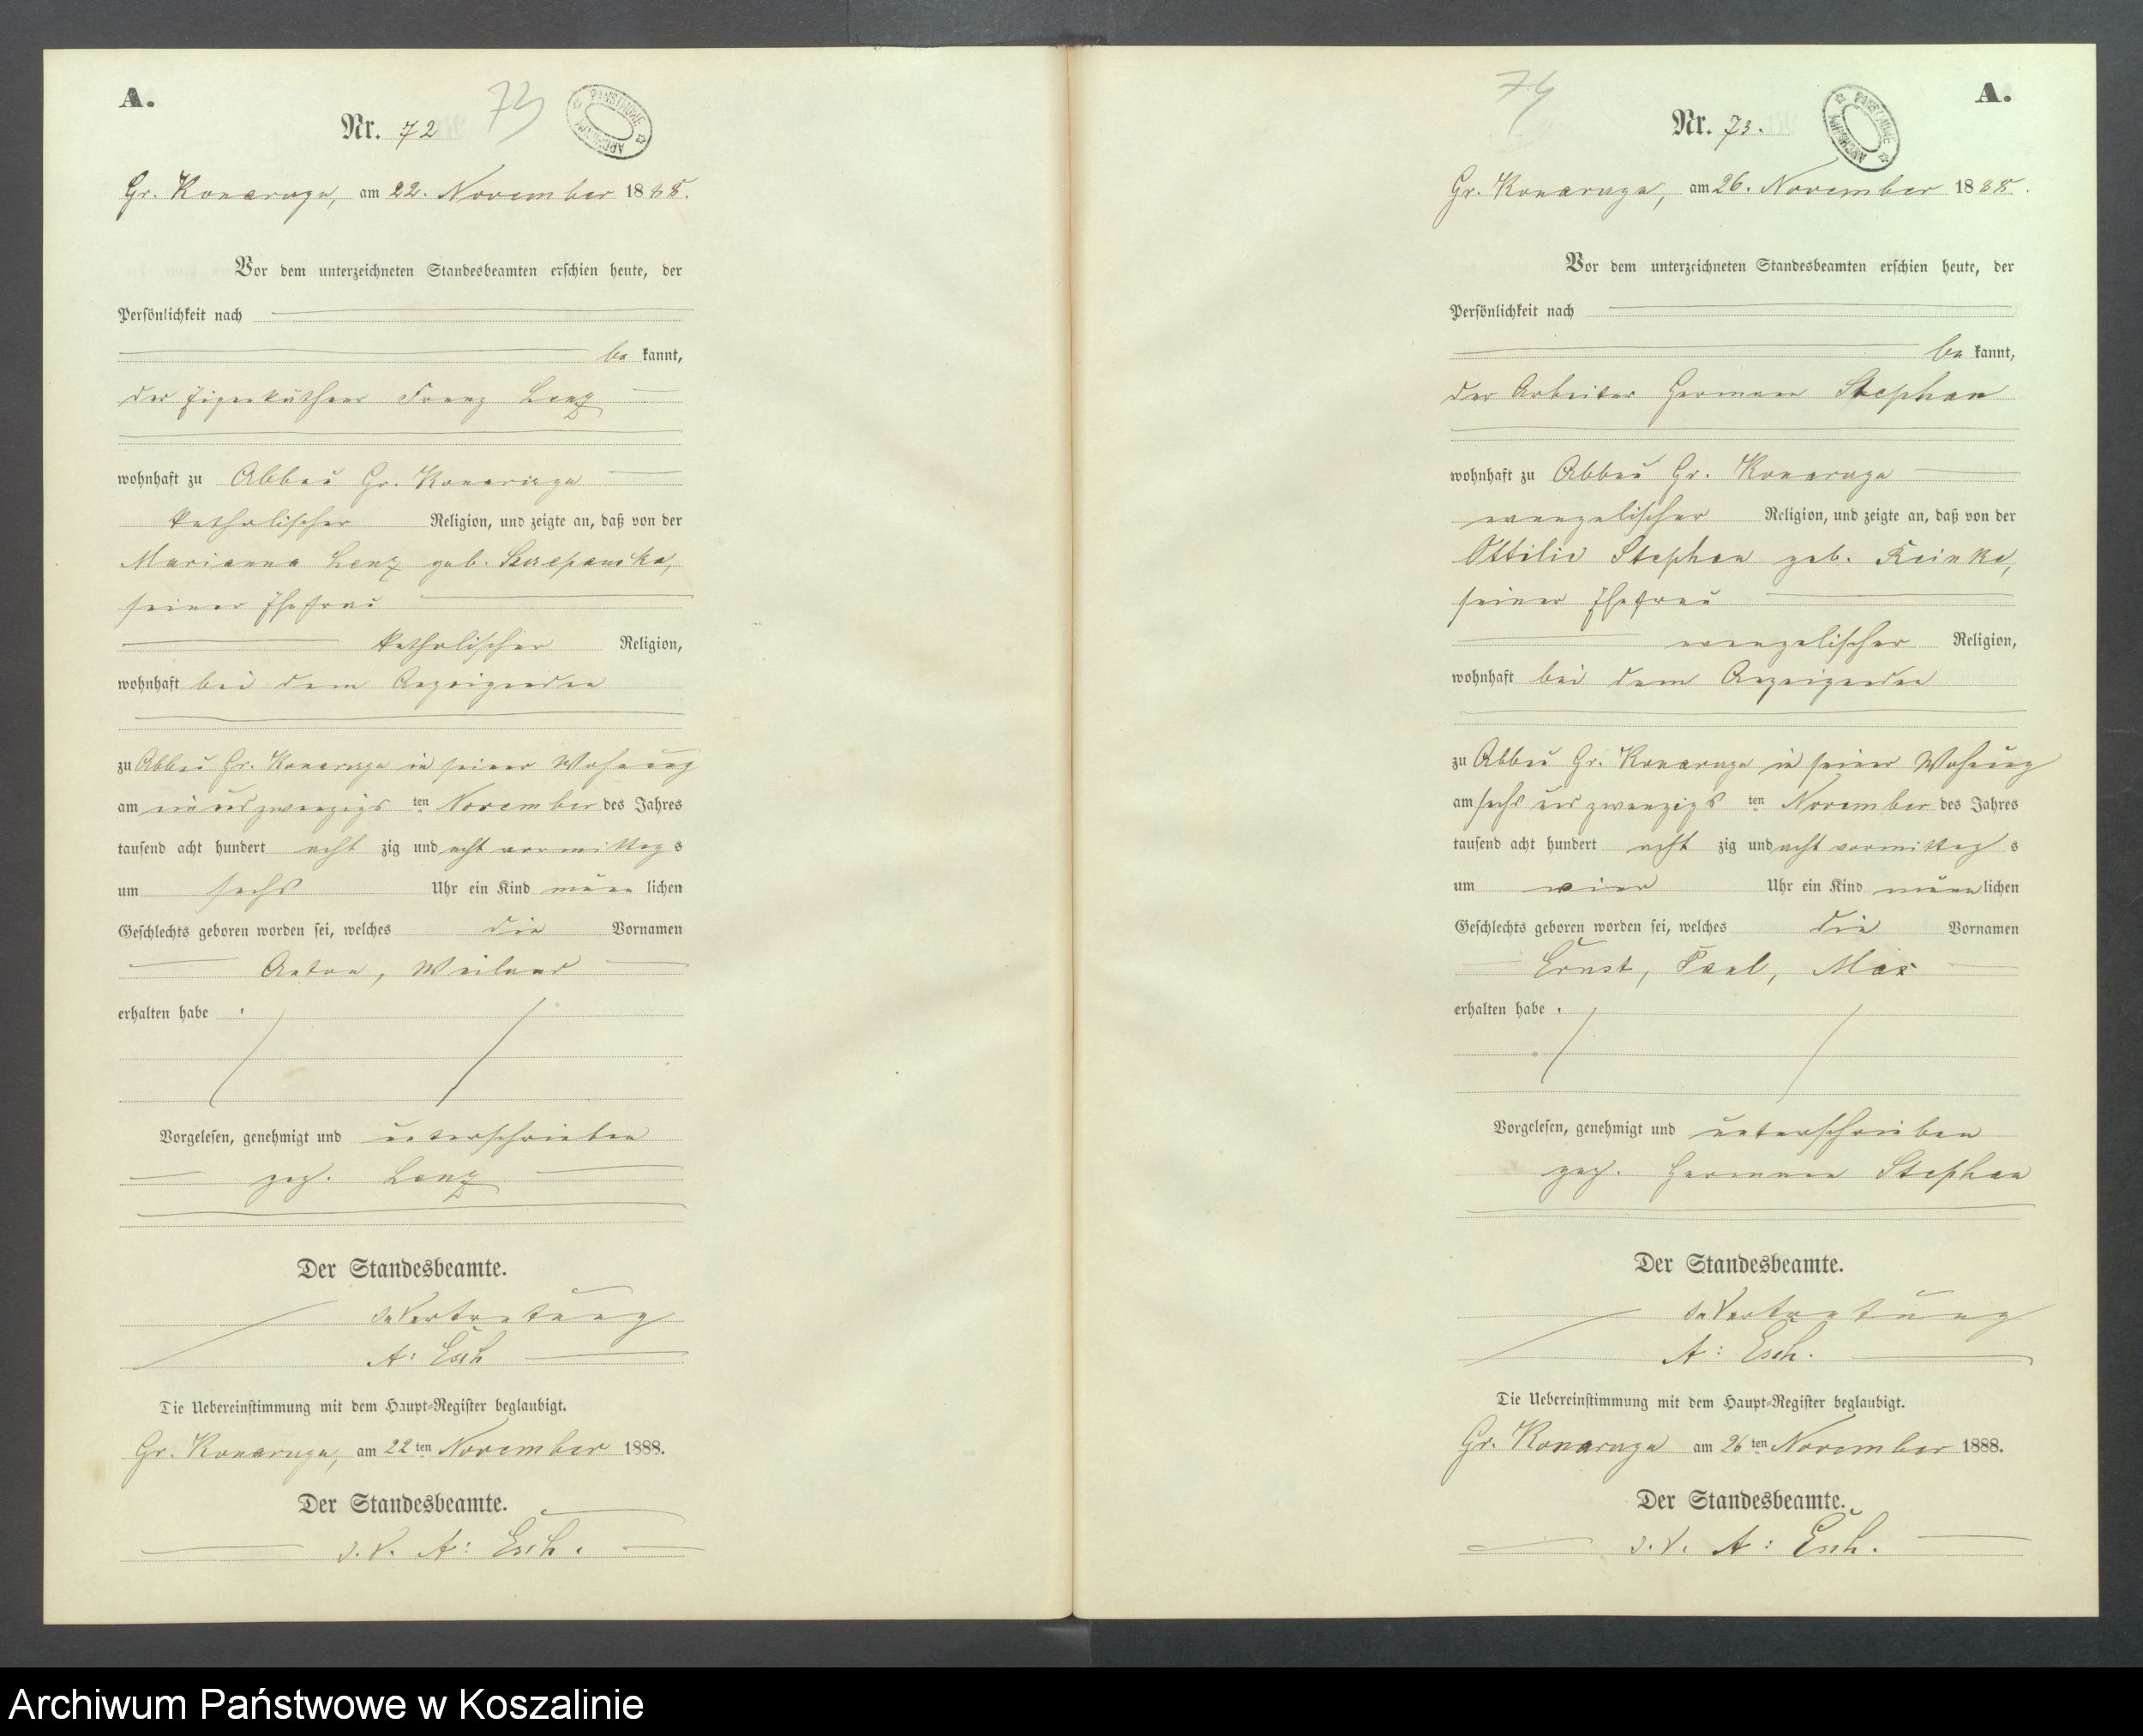 A.
73
Nr. 72
Gr. Konarzyn, am 22. November 1888.
Vor dem unterzeichneten Standesbeamten erschien heute, der
Persönlichkeit nach
be kannt,
der Eigenkäthner Franz Lenz
wohnhaft zu Abbau Gr. Konarzyn
katholischer Religion, und zeigte an, daß von der
Marianna Lenz geb.
seiner Ehefrau
katholischer Religion,
wohnhaft bei dem Anzeigenden
zu Abbau Gr. Konarzyn in seiner Wohnung
am ein und zwanzigs ten November des Jahres
tausend acht hundert acht zig und acht vormittag s
um sechs Uhr ein Kind männ lichen
Geschlechts geboren worden sei, welches die Vornamen
Anton,
erhalten habe.
Vorgelesen, genehmigt und unterschrieben
gez. Lenz
Der Standesbeamte.
In Vertretung
A: Esch
Die Uebereinstimmung mit dem Haupt-Register beglaubigt.
Gr. Konarzyn, am 22 ten November 1888.
Der Standesbeamte.
I. V. A: Esch.
A.
74
Nr. 73.
PAŃSTWOWE ARCHIWUM
Gr. Konarzyn, am 26. November 1888.
Vor dem unterzeichneten Standesbeamten erschien heute, der
Persönlichkeit nach
be kannt,
der Arbeiter Hermann Stephan
wohnhaft zu Abbau Gr. Konarzyn
evangelischer Religion, und zeigte an, daß von der
Ottilie Stephan geb. Reinke,
seiner Ehefrau
evangelischer Religion,
wohnhaft bei dem Anzeigenden
zu Abbau Gr. Konarzyn in seiner Wohnung
am sechs und zwanzigs ten November des Jahres
tausend acht hundert acht zig und acht vormittag s
um vier Uhr ein Kind männ lichen
Geschlechts geboren worden sei, welches die Vornamen
Ernst, Paul, Max
erhalten habe.
Vorgelesen, genehmigt und unterschrieben
gez. Hermann Stephan
Der Standesbeamte.
In Vertretung
A: Esch.
Die Uebereinstimmung mit dem Haupt-Register beglaubigt.
Gr. Konarzyn am 26 ten November 1888.
Der Standesbeamte.
I. V. A: Esch.
Archiwum Państwowe w Koszalinie